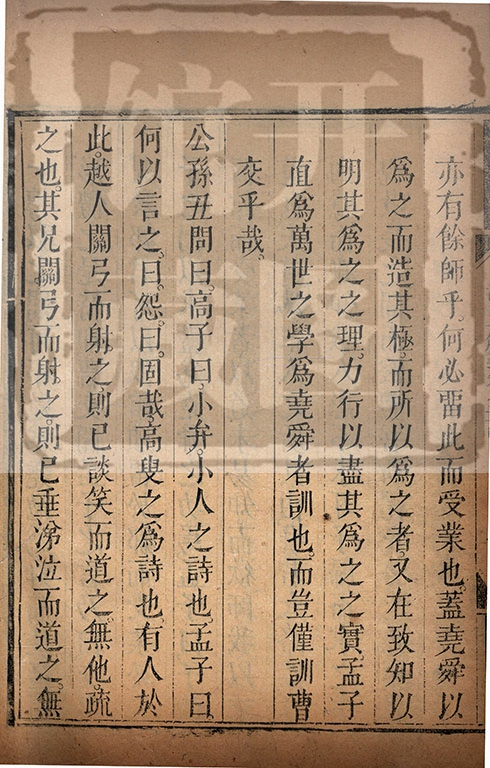 亦有餘師乎。何必畱此而受業也。蓋堯舜以
爲之而造其極。而所以爲之者。又在致知以
明其爲之之理。力行以盡其爲之之實。孟子
直爲萬世之學爲堯舜者訓也。而豈僅訓曹
交乎哉。
公孫丑問曰。高子曰。小弁。小人之詩也。孟子曰。
何以言之。曰。怨。曰。固哉。高叟之爲詩也。有人於
此。越人關弓而射之。則已談笑而道之。無他。疏
之也。其兄關弓而射之。則已垂涕泣而道之。無